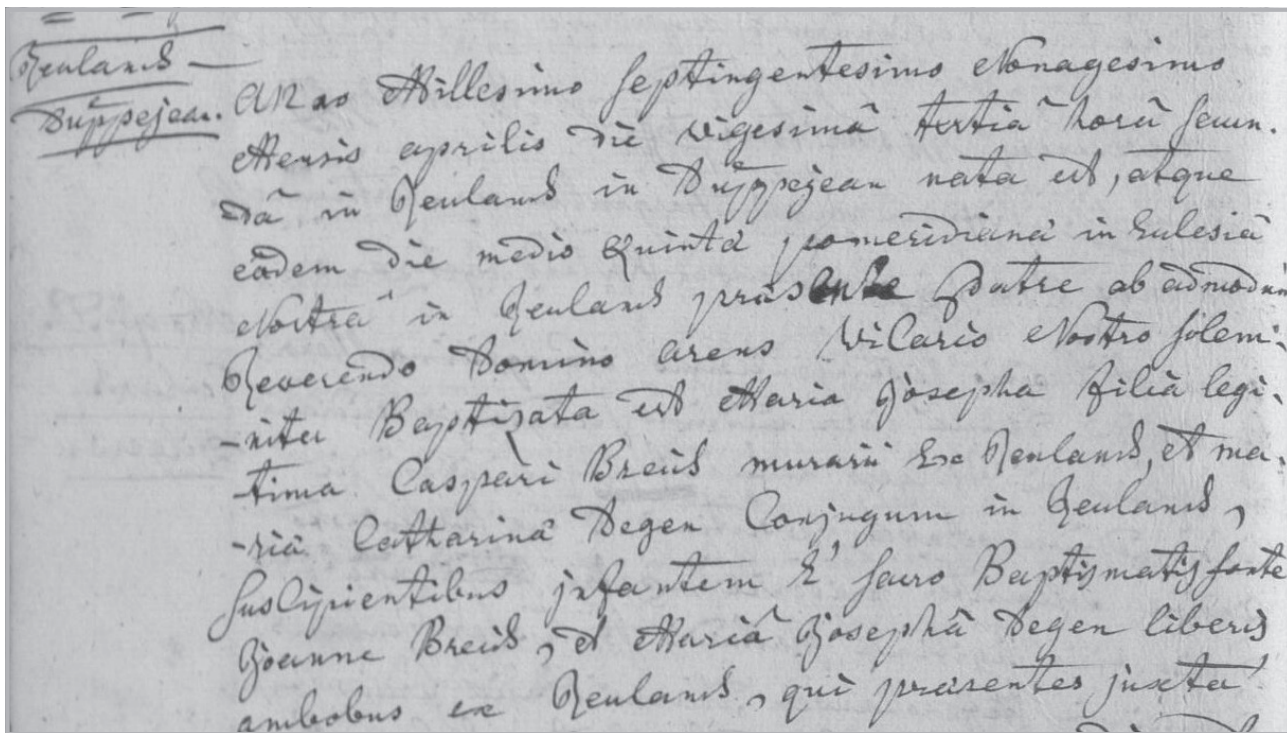 Reuland
Duppejean.
Anno Millesimo Septingentesimo Nonagesimo
Mensis aprilis die vigesimâ tertiâ horâ secun-
dâ in Reuland in Duppejean nata est, atque
eâdem die mediò quintâ pomeridianâ in Ecclesiâ
Nostrâ in Reuland præsente Patre ab admodum
Reverendo Domino arens Vicario Nostro solem-
-niter Baptizata est Maria Josepha filia legi-
-tima Caspari Breid murarii ex Reuland, et ma-
-ria Catharina Degen Conjugum in Reuland,
suscipientibus infantem è sacro Baptismatis fonte
Joanne Breid, et Mariâ Josephâ Degen liberis
ambobus ex Reuland, qui præsentes juxta